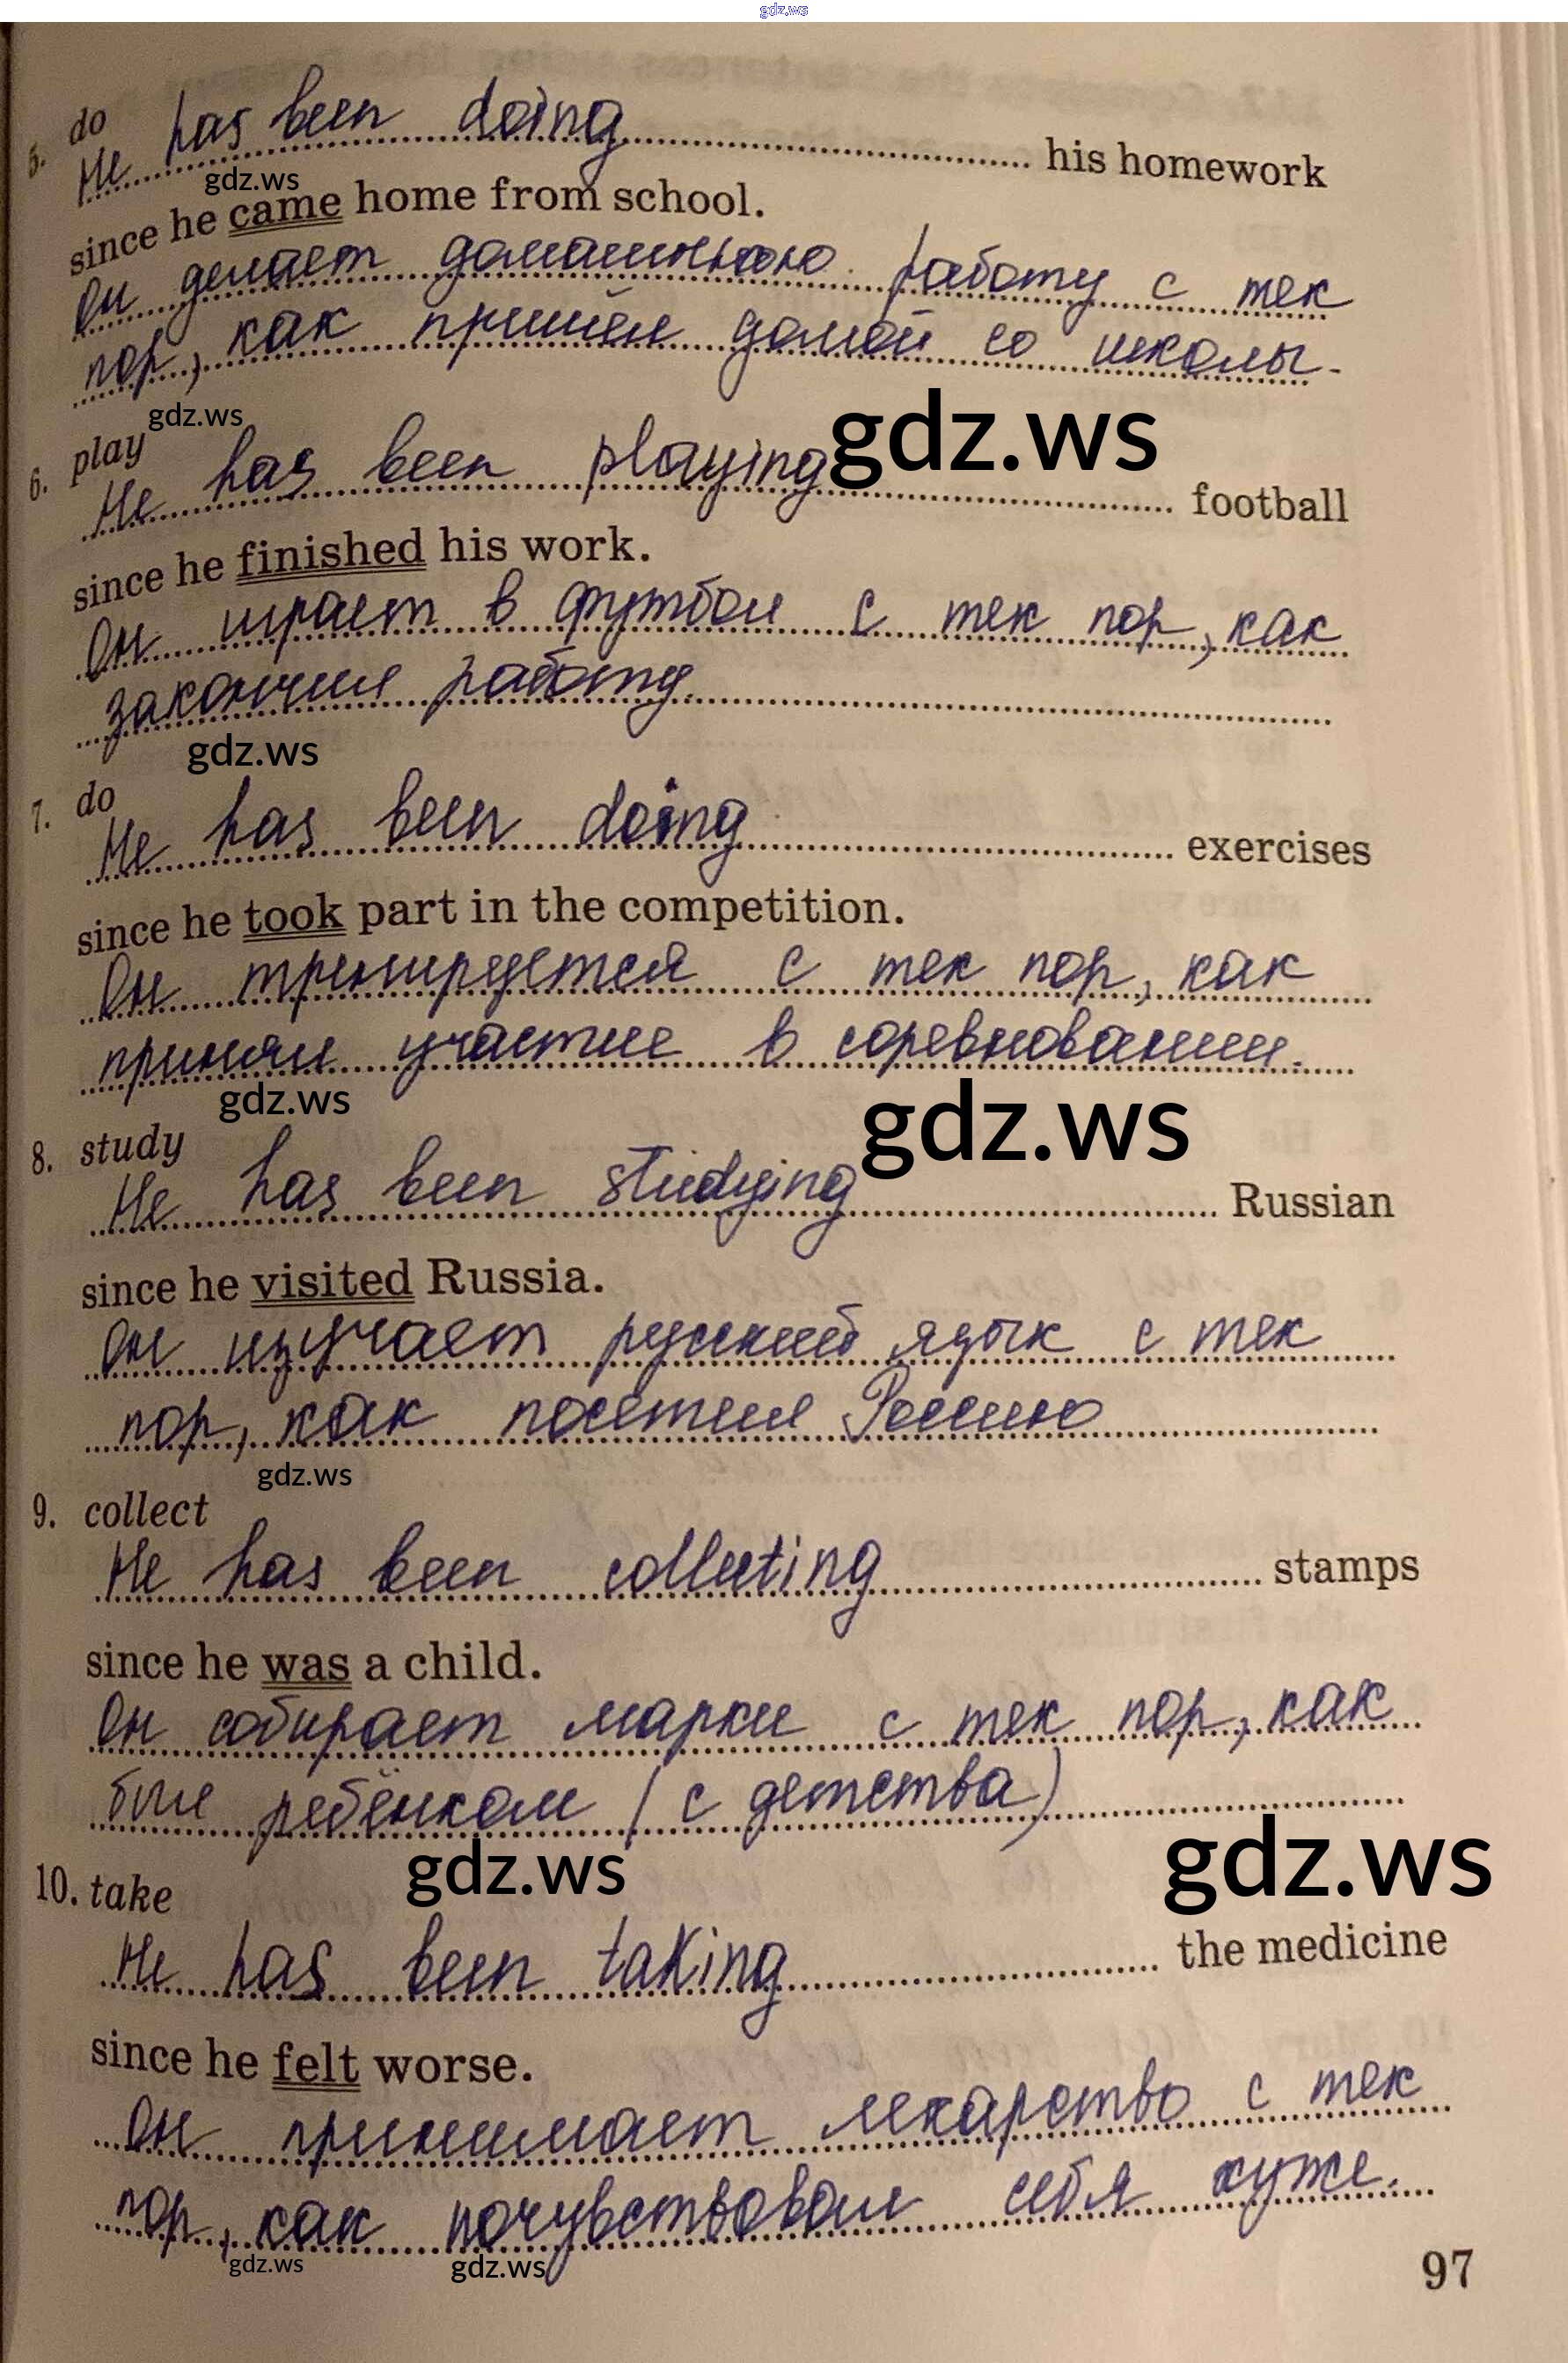 gdz.ws
5. do
He has been doing his homework
gdz.ws
since he came home from school.
Он делает домашнюю работу с тех
пор, как пришёл домой со школы.
gdz.ws
gdz.ws
6. play
He has been playing football
since he finished his work.
Он играет в футбол с тех пор, как
закончил работу.
gdz.ws
7. do
He has been doing exercises
since he took part in the competition.
Он тренируется с тех пор, как
принял участие в соревновании.
gdz.ws
gdz.ws
8. study
He has been studying Russian
since he visited Russia.
Он изучает русский язык с тех
пор, как посетил Россию
gdz.ws
9. collect
He has been collecting stamps
since he was a child.
Он собирает марки с тех пор, как
был ребёнком (с детства)
gdz.ws
gdz.ws
10. take
He has been taking the medicine
since he felt worse.
Он принимает лекарство с тех
пор, как почувствовал себя хуже.
gdz.ws
gdz.ws
97